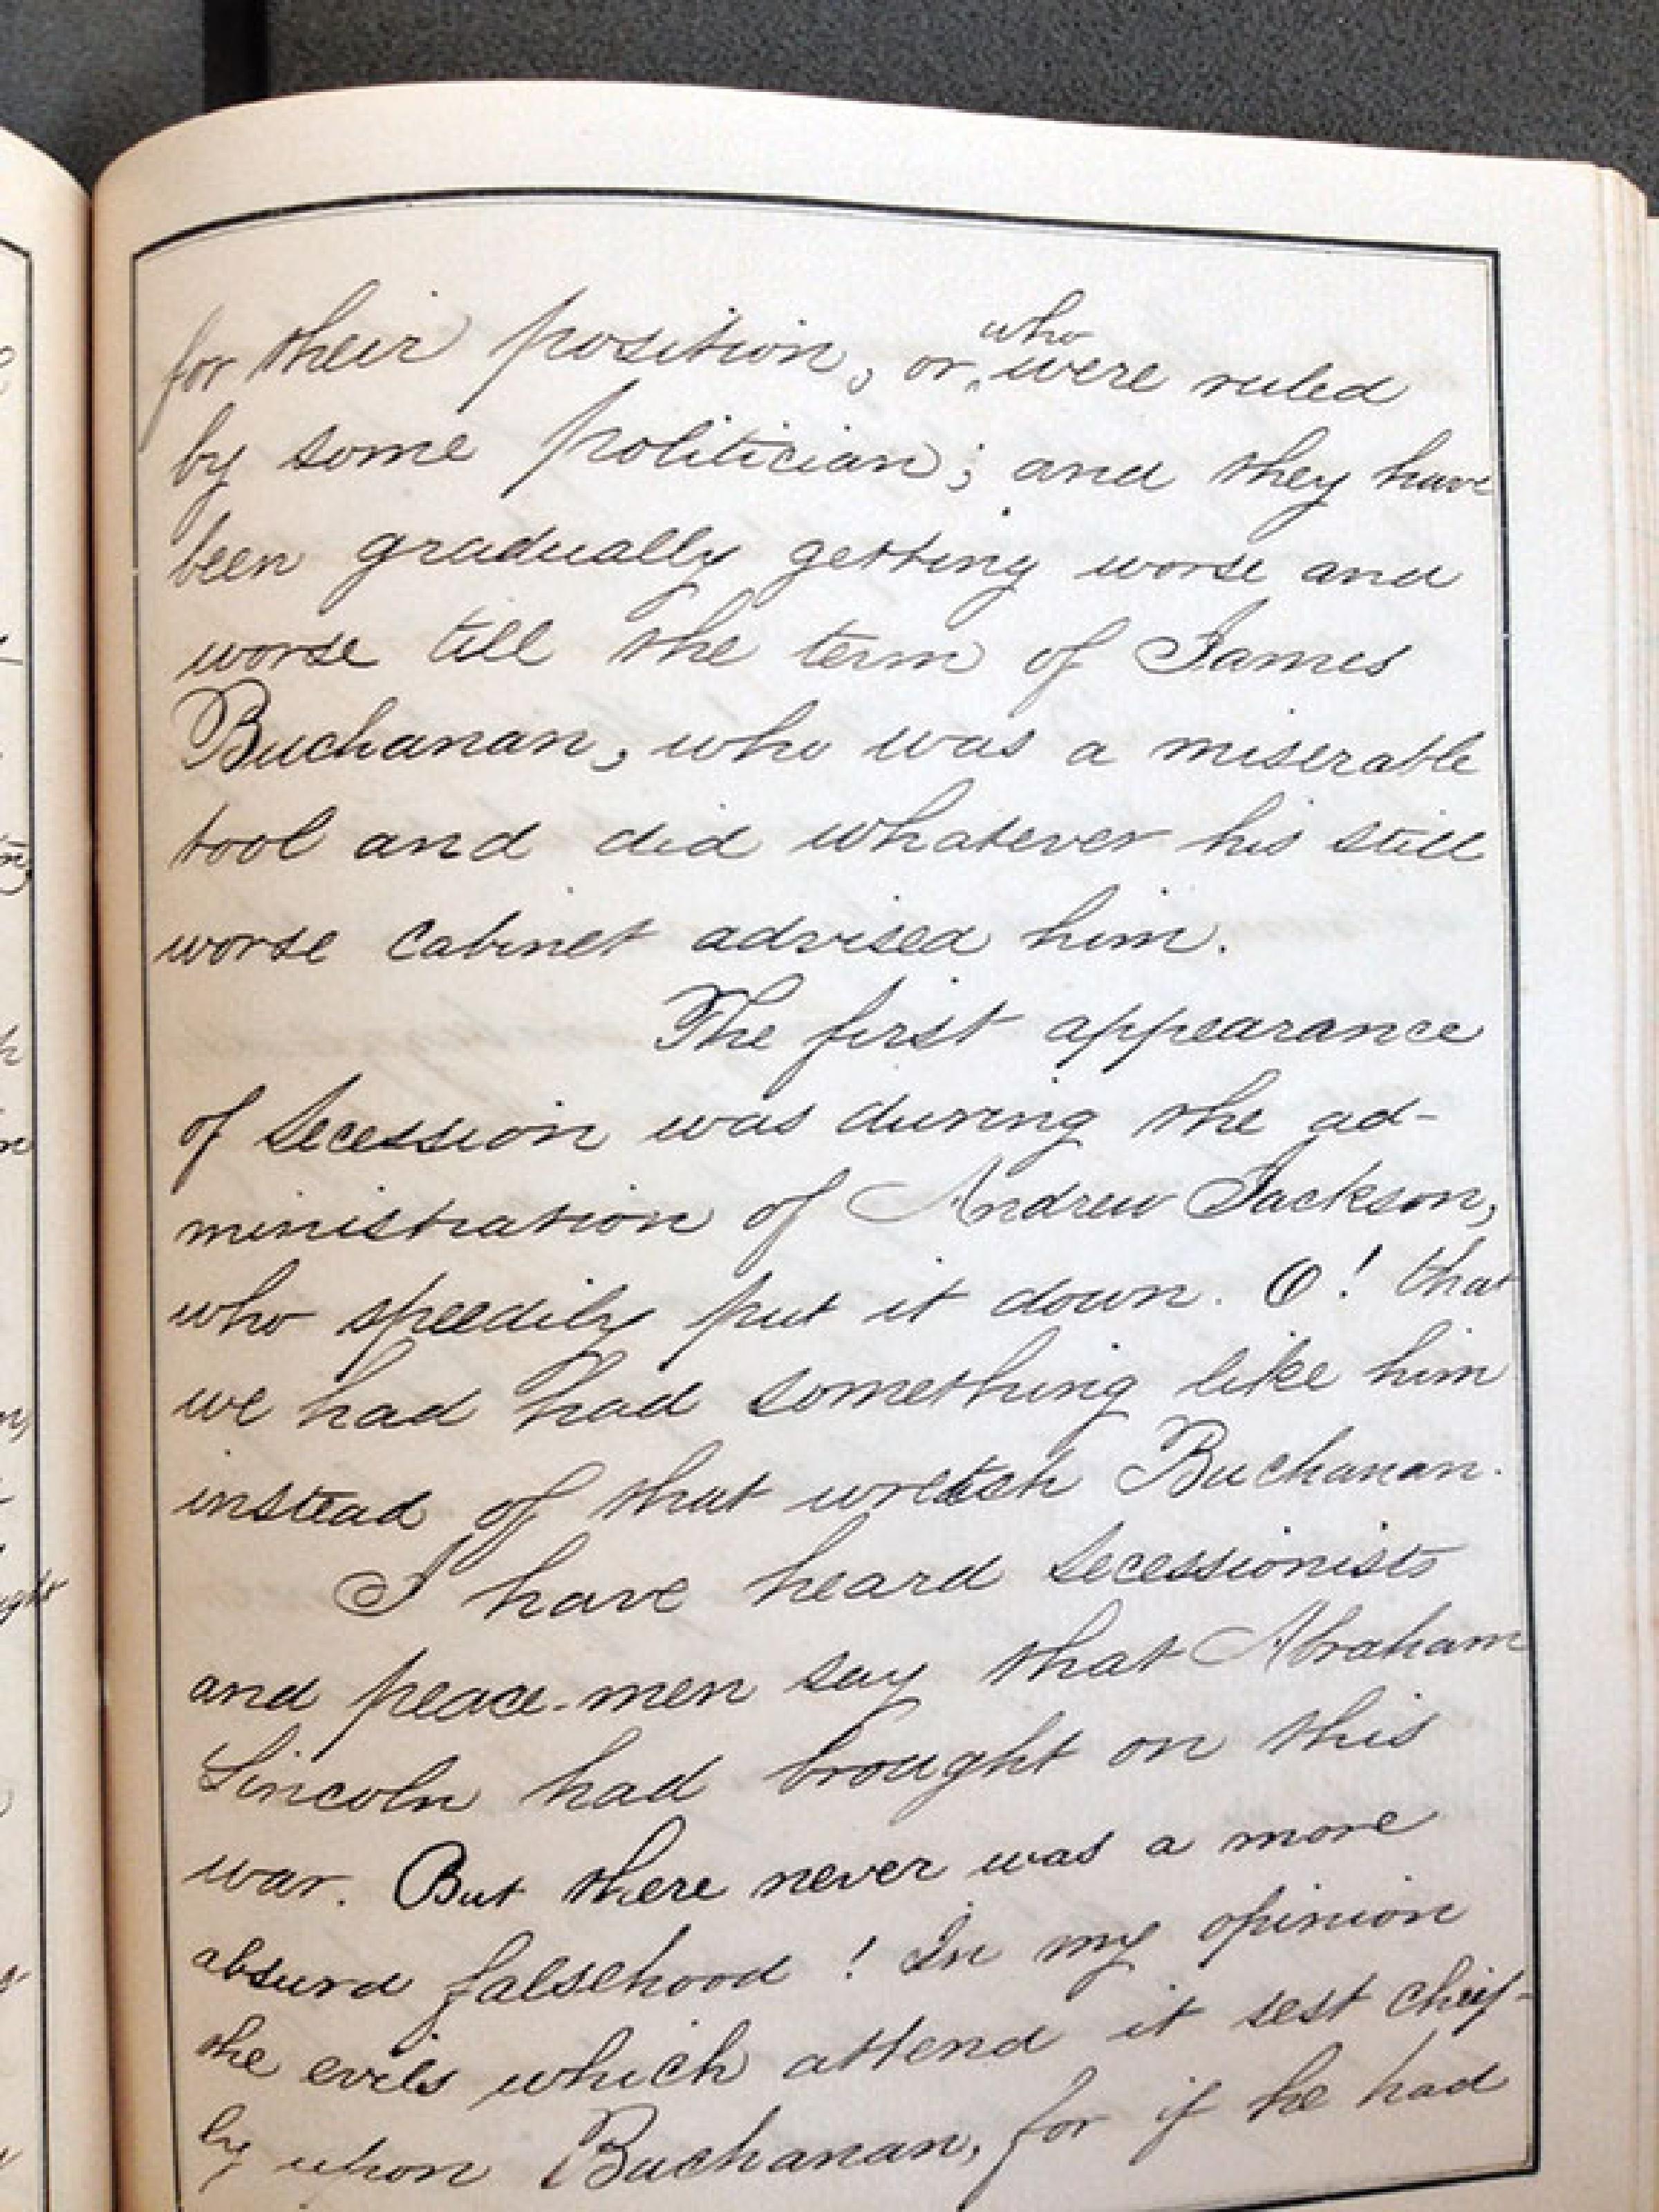 who
for their position, or, were ruled
by some politician; and they have
been gradually getting worse and
worse till the term of James
Buchanan, who was a miserable
tool and did whatever his still
worse cabinet advised him.
The first appearance
of Secession was during the ad-
ministration of Andrew Jackson,
who speedily put it down. O! that
we had had something like him
instead of that wretch Buchanan.
I have heard Secessionists
and peace-men say that Abraham
Lincoln had brought on this
war. But there never was a more
absurd falsehood! In my opinion
the evils which attend it rest chief-
ly upon Buchanan, for if he had